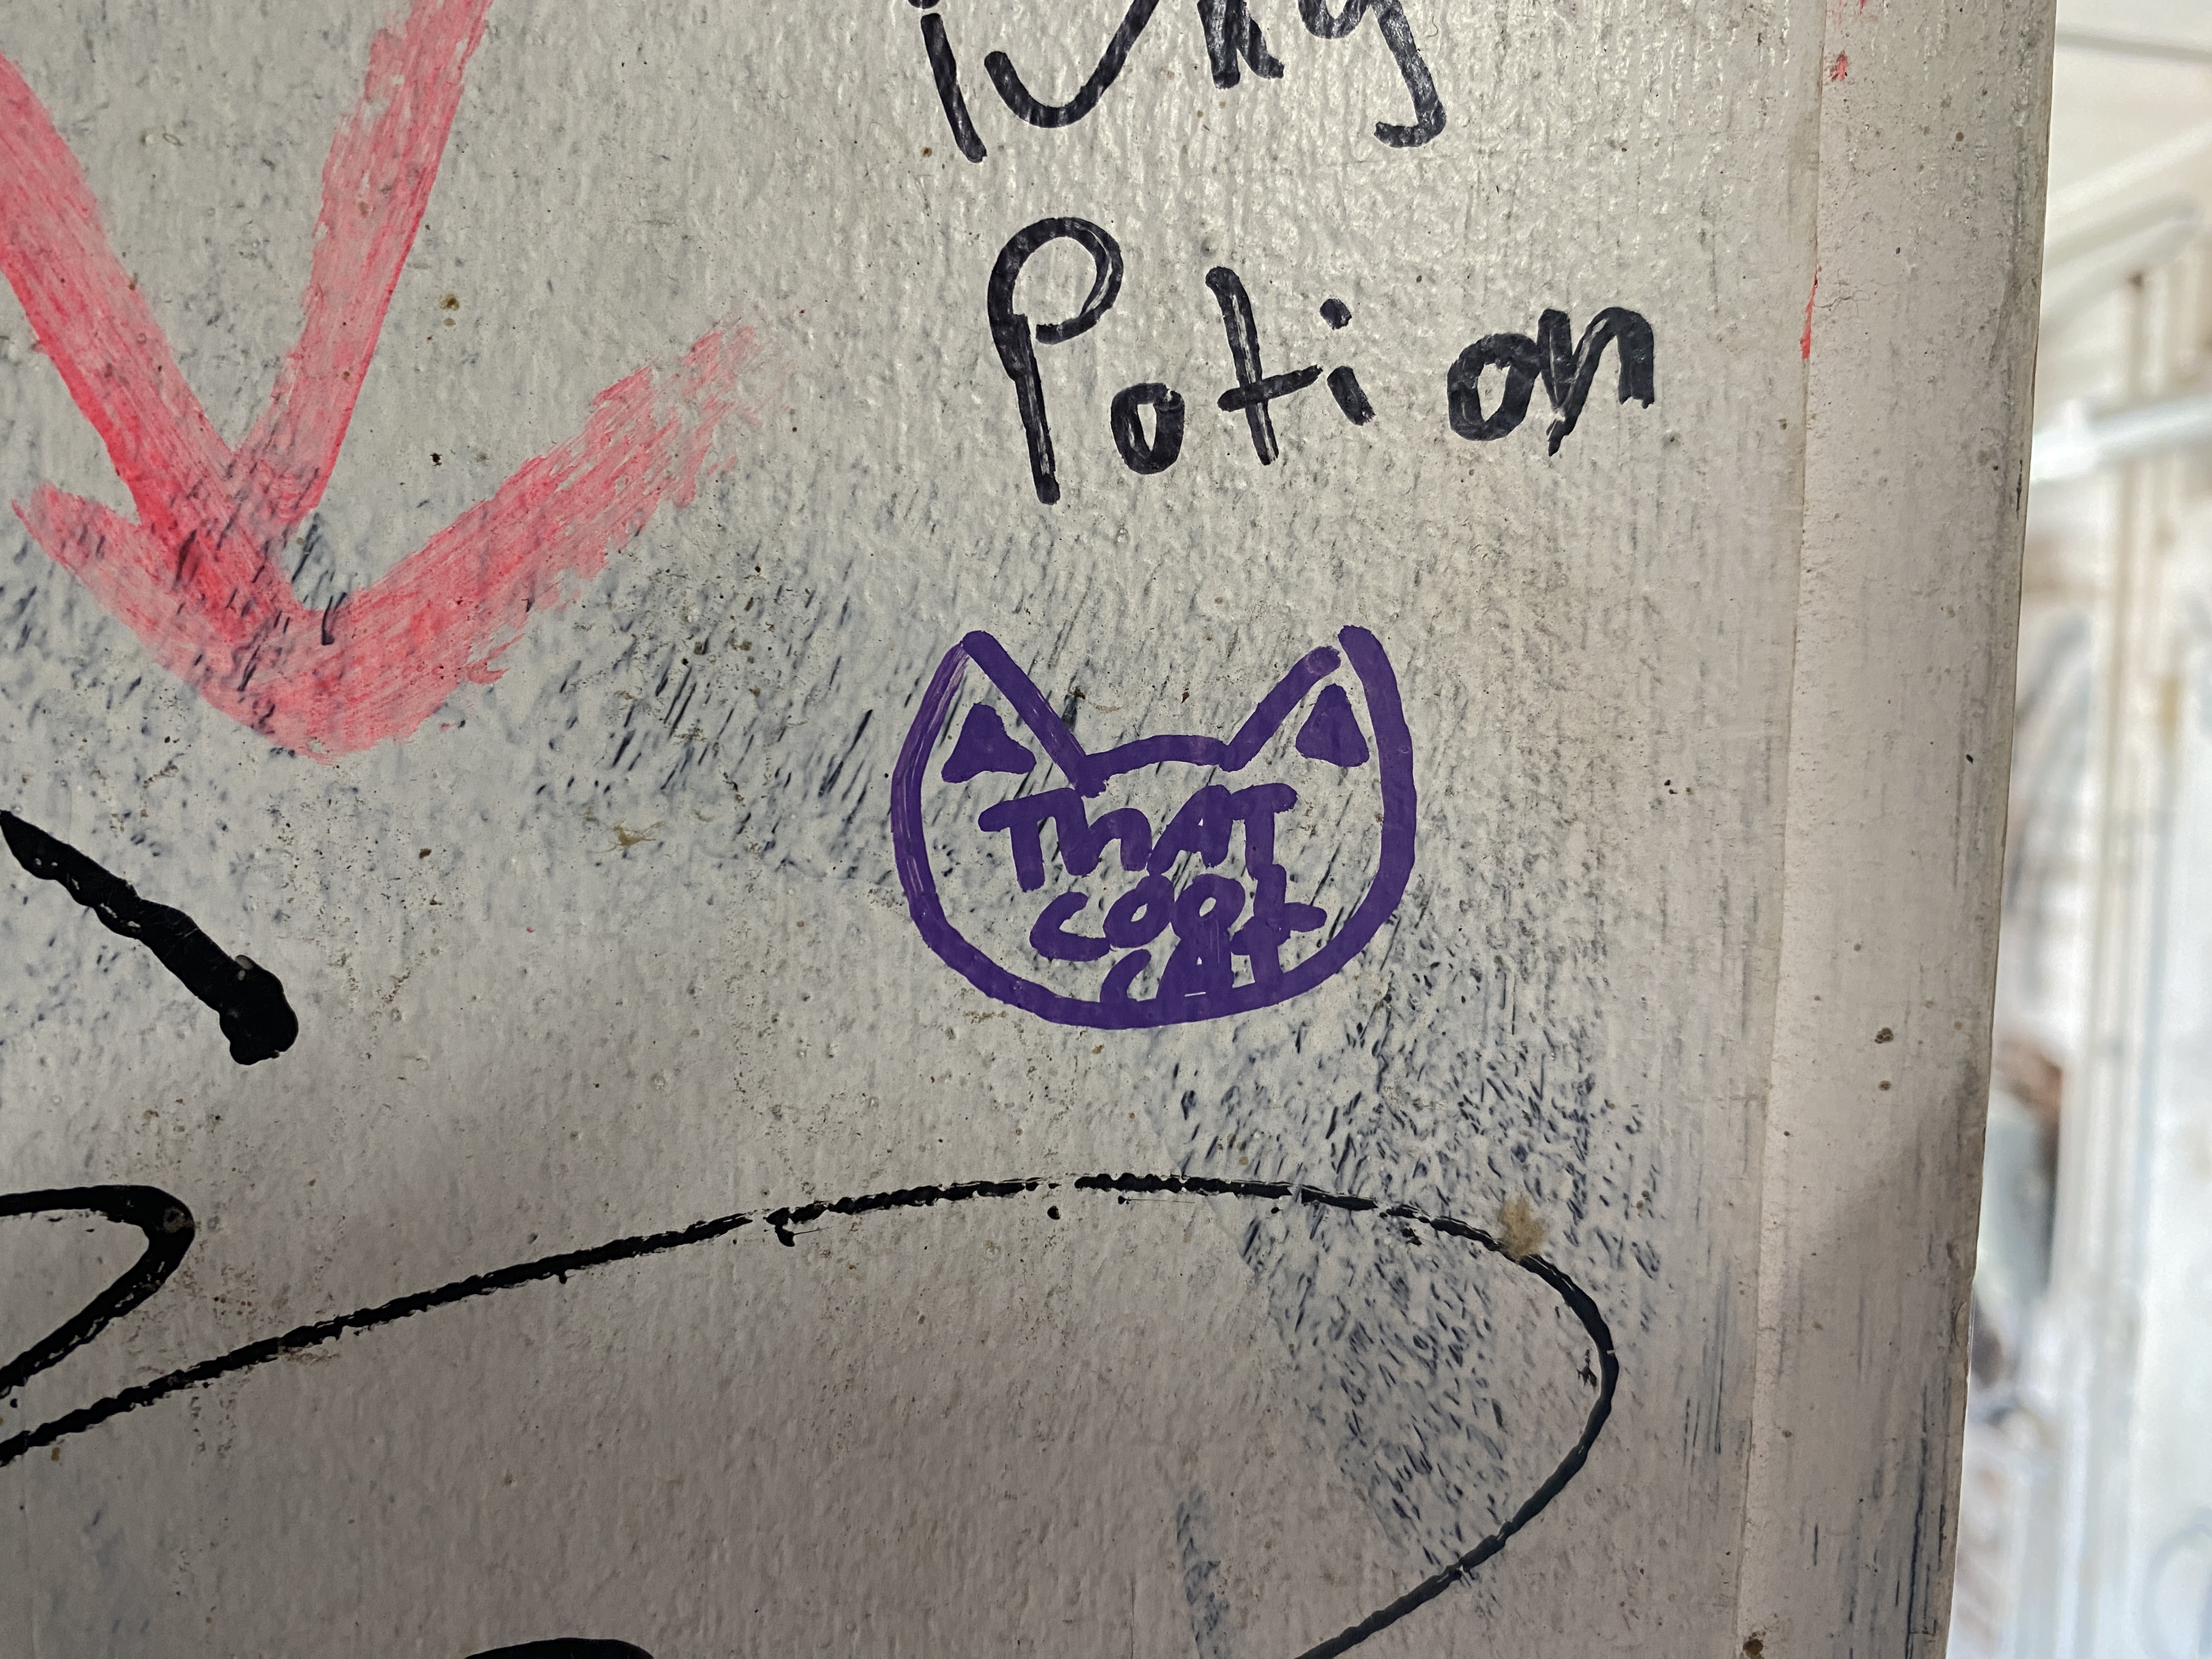 Potion
THAT
COOL
CAT